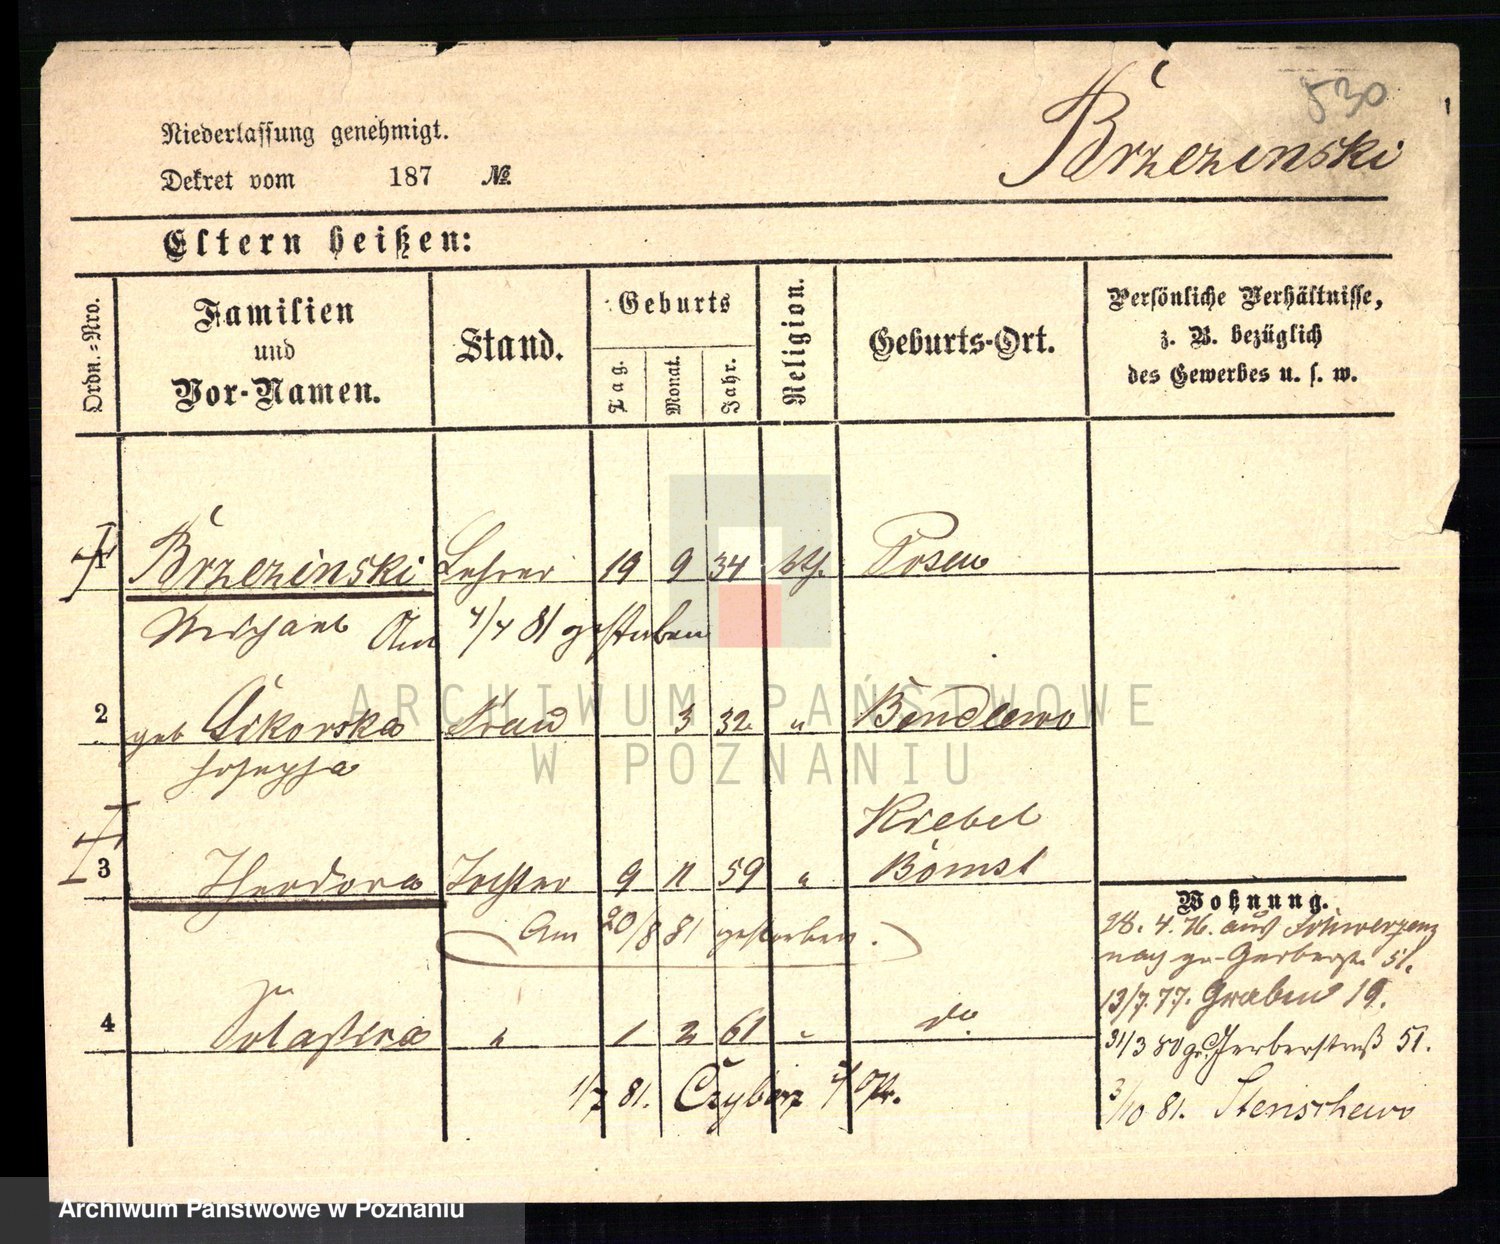 530
Brzezinski
Niederlassung genehmigt.
Dekret vom 187 №.
Eltern heißen:
Ordn.-Nro.
Familien
und
Vor-Namen.
Stand.
Geburts
Tag.
Monat.
Jahr.
Religion.
Geburts-Ort.
Persönliche Verhältnisse,
z. B. bezüglich
des Gewerbes u. s. w.
1 Brzezinski Lehrer 19 9 34 Posen
Michael Am 4/4 81 gestorben
2 geb Sikorska Frau 3 32 " Bendlewo
Josepha
Kiebel
3 Theodora Tochter 9 11 59 " Bomst
Am 20/8 81 gestorben.
4 1 2 61 " do.
1/7 81.
Wohnung.
28. 4. 76. aus Schwersenz
nach gr. Gerberstr. 51.
13/7. 77. Graben 19.
31/3 80 gr. Gerberstraß 51.
3/10 81. Stenschewo
ARCHIWUM PAŃSTWOWE
W POZNANIU
Archiwum Państwowe w Poznaniu